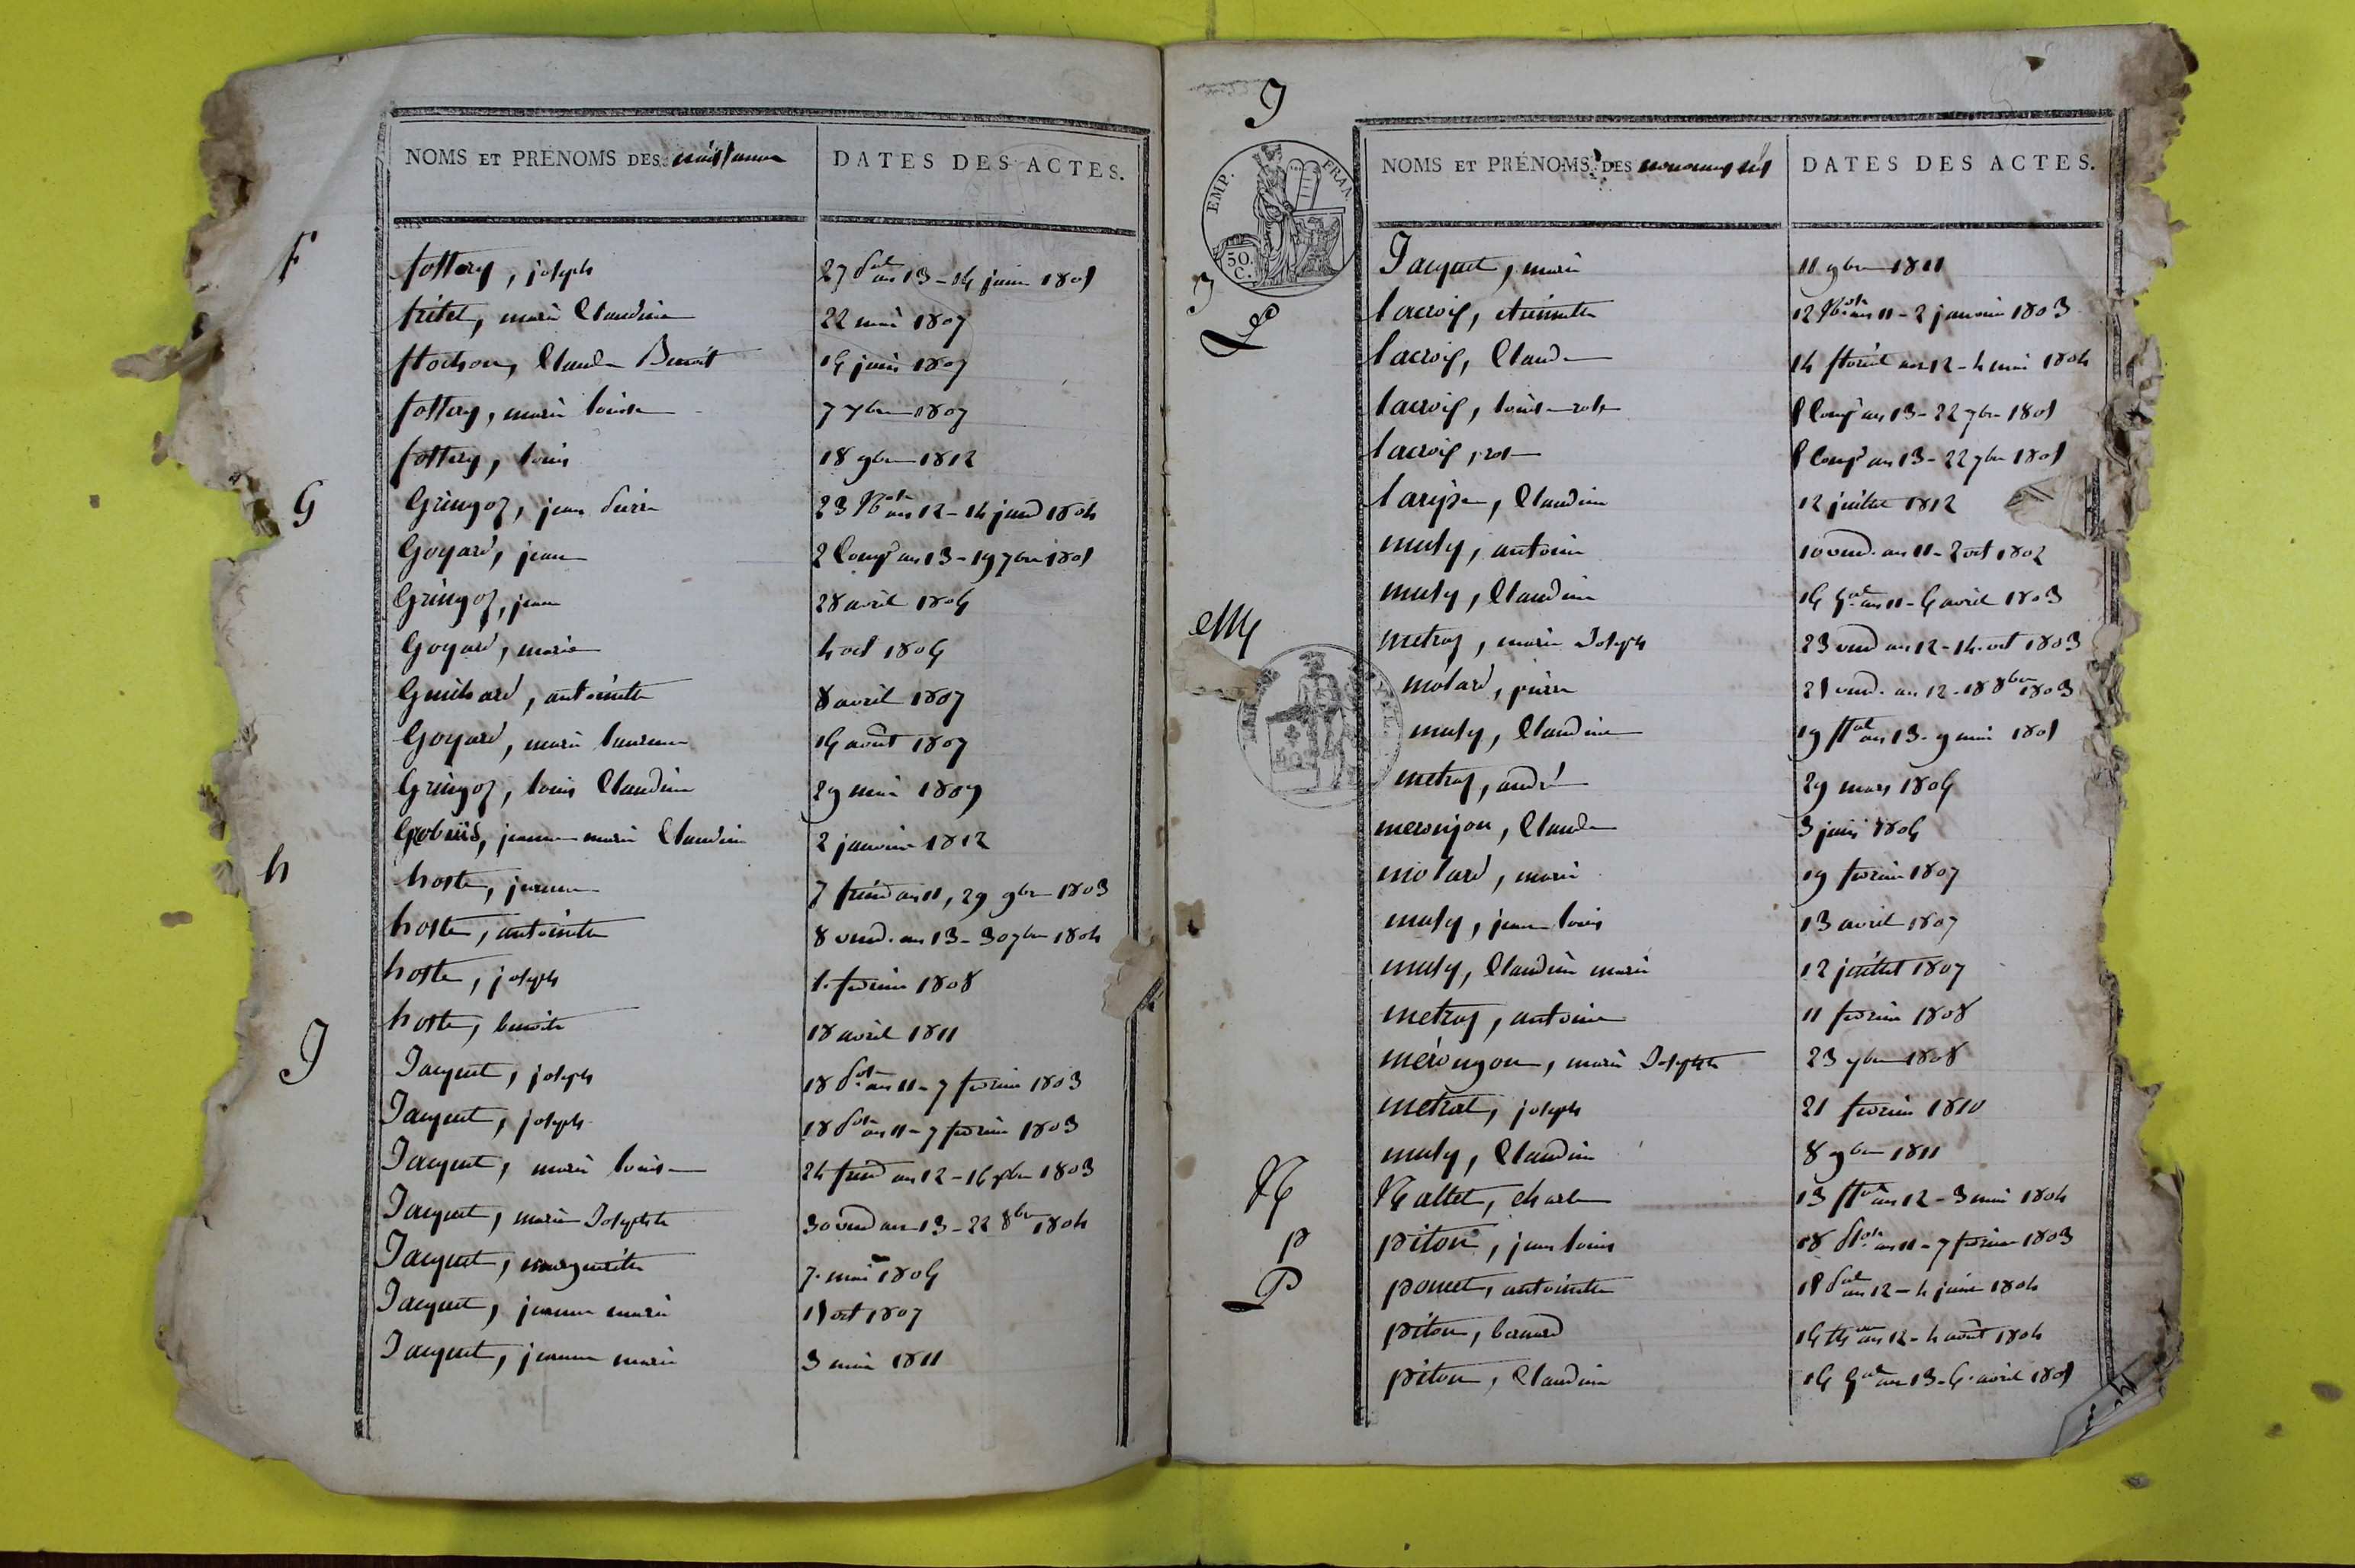 NOMS ET PRÉNOMS DES naissances
DATES DES ACTES.
F
fottery, joseph 27 an 13 - 16 juin 1805
fritet, marie Claudine 22 mai 1807
flochon, Claude Benoit 16 juin 1807
fottery, marie louise 7 7bre 1807
fottery, louis 18 9bre 1812
G
Gringoz, jean pierre 23 an 12 - 14 1804
Goyard, jean 2 Comp an 13 - 19 7bre 1805
Gringoz, jean 28 avril 1806
Goyard, marie 4 oct 1806
Guichard, antoinette 8 avril 1807
Goyard, marie 16 août 1807
Gringoz, louis Claudine 29 mai 1809
jeanne marie Claudine 2 janvier 1812
h
hoste, jeanne 7 an 11, 29 9bre 1803
hoste, antoinette 8 vend. an 13 - 30 7bre 1804
hoste, joseph 1. fevrier 1808
hoste, benoite 18 avril 1811
J
Jacquet, joseph 18 an 11 - 7 fevrier 1803
Jacquet, joseph 18 an 11 - 7 fevrier 1803
Jacquet, marie louise 24 an 12 - 16 1803
Jacquet, marie Josephte 30 vend an 13 - 22 8bre 1804
Jacquet, marguerite 7. mai 1806
Jacquet, jeanne marie 15 oct 1807
Jacquet, jeanne marie 3 mai 1811
J
EMP. FRAN.
50. C.
NOMS ET PRÉNOMS DES nouveaux nés
DATES DES ACTES.
J
Jacquet, marie 11 9bre 1811
L
lacroix, etiennette 12 an 11 - 2 janvier 1803
lacroix, Claude 14 floréal an 12 - 4 mai 1804
lacroix, louise rose 5 Comp an 13 - 22 7bre 1805
lacroix, rose 5 Comp an 13 - 22 7bre 1805
Claudine 12 juillet 1812
M
musy, antoine 10 vend. an 11 - 2 oct 1802
musy, Claudine 16 an 11 - 6 avril 1803
metraz, marie Joseph 23 vend an 12 - 14. oct 1803
molard, pierre 25 vend. an 12 - 18 8bre 1803
musy, Claudine 19 an 13 - 9 mai 1805
metraz, andré 29 mars 1806
meronjon, Claude 3 juin 1806
molard, marie 19 fevrier 1807
musy, jean louis 13 avril 1807
musy, Claudine marie 12 juillet 1807
metraz, antoine 11 fevrier 1808
méronjon, marie Josephte 23 1808
metrat, joseph 21 fevrier 1810
musy, Claudine 8 9bre 1811
N
Naltet, charles 13 an 12 - 3 mai 1804
P
piton, jean louis 18 an 11 - 7 fevrier 1803
P
ponet, antoinette 15 an 12 - 4 juin 1804
piton, bernard 16 an 12 - 4 août 1804
piton, Claudine 16 an 13 - 6. avril 1805